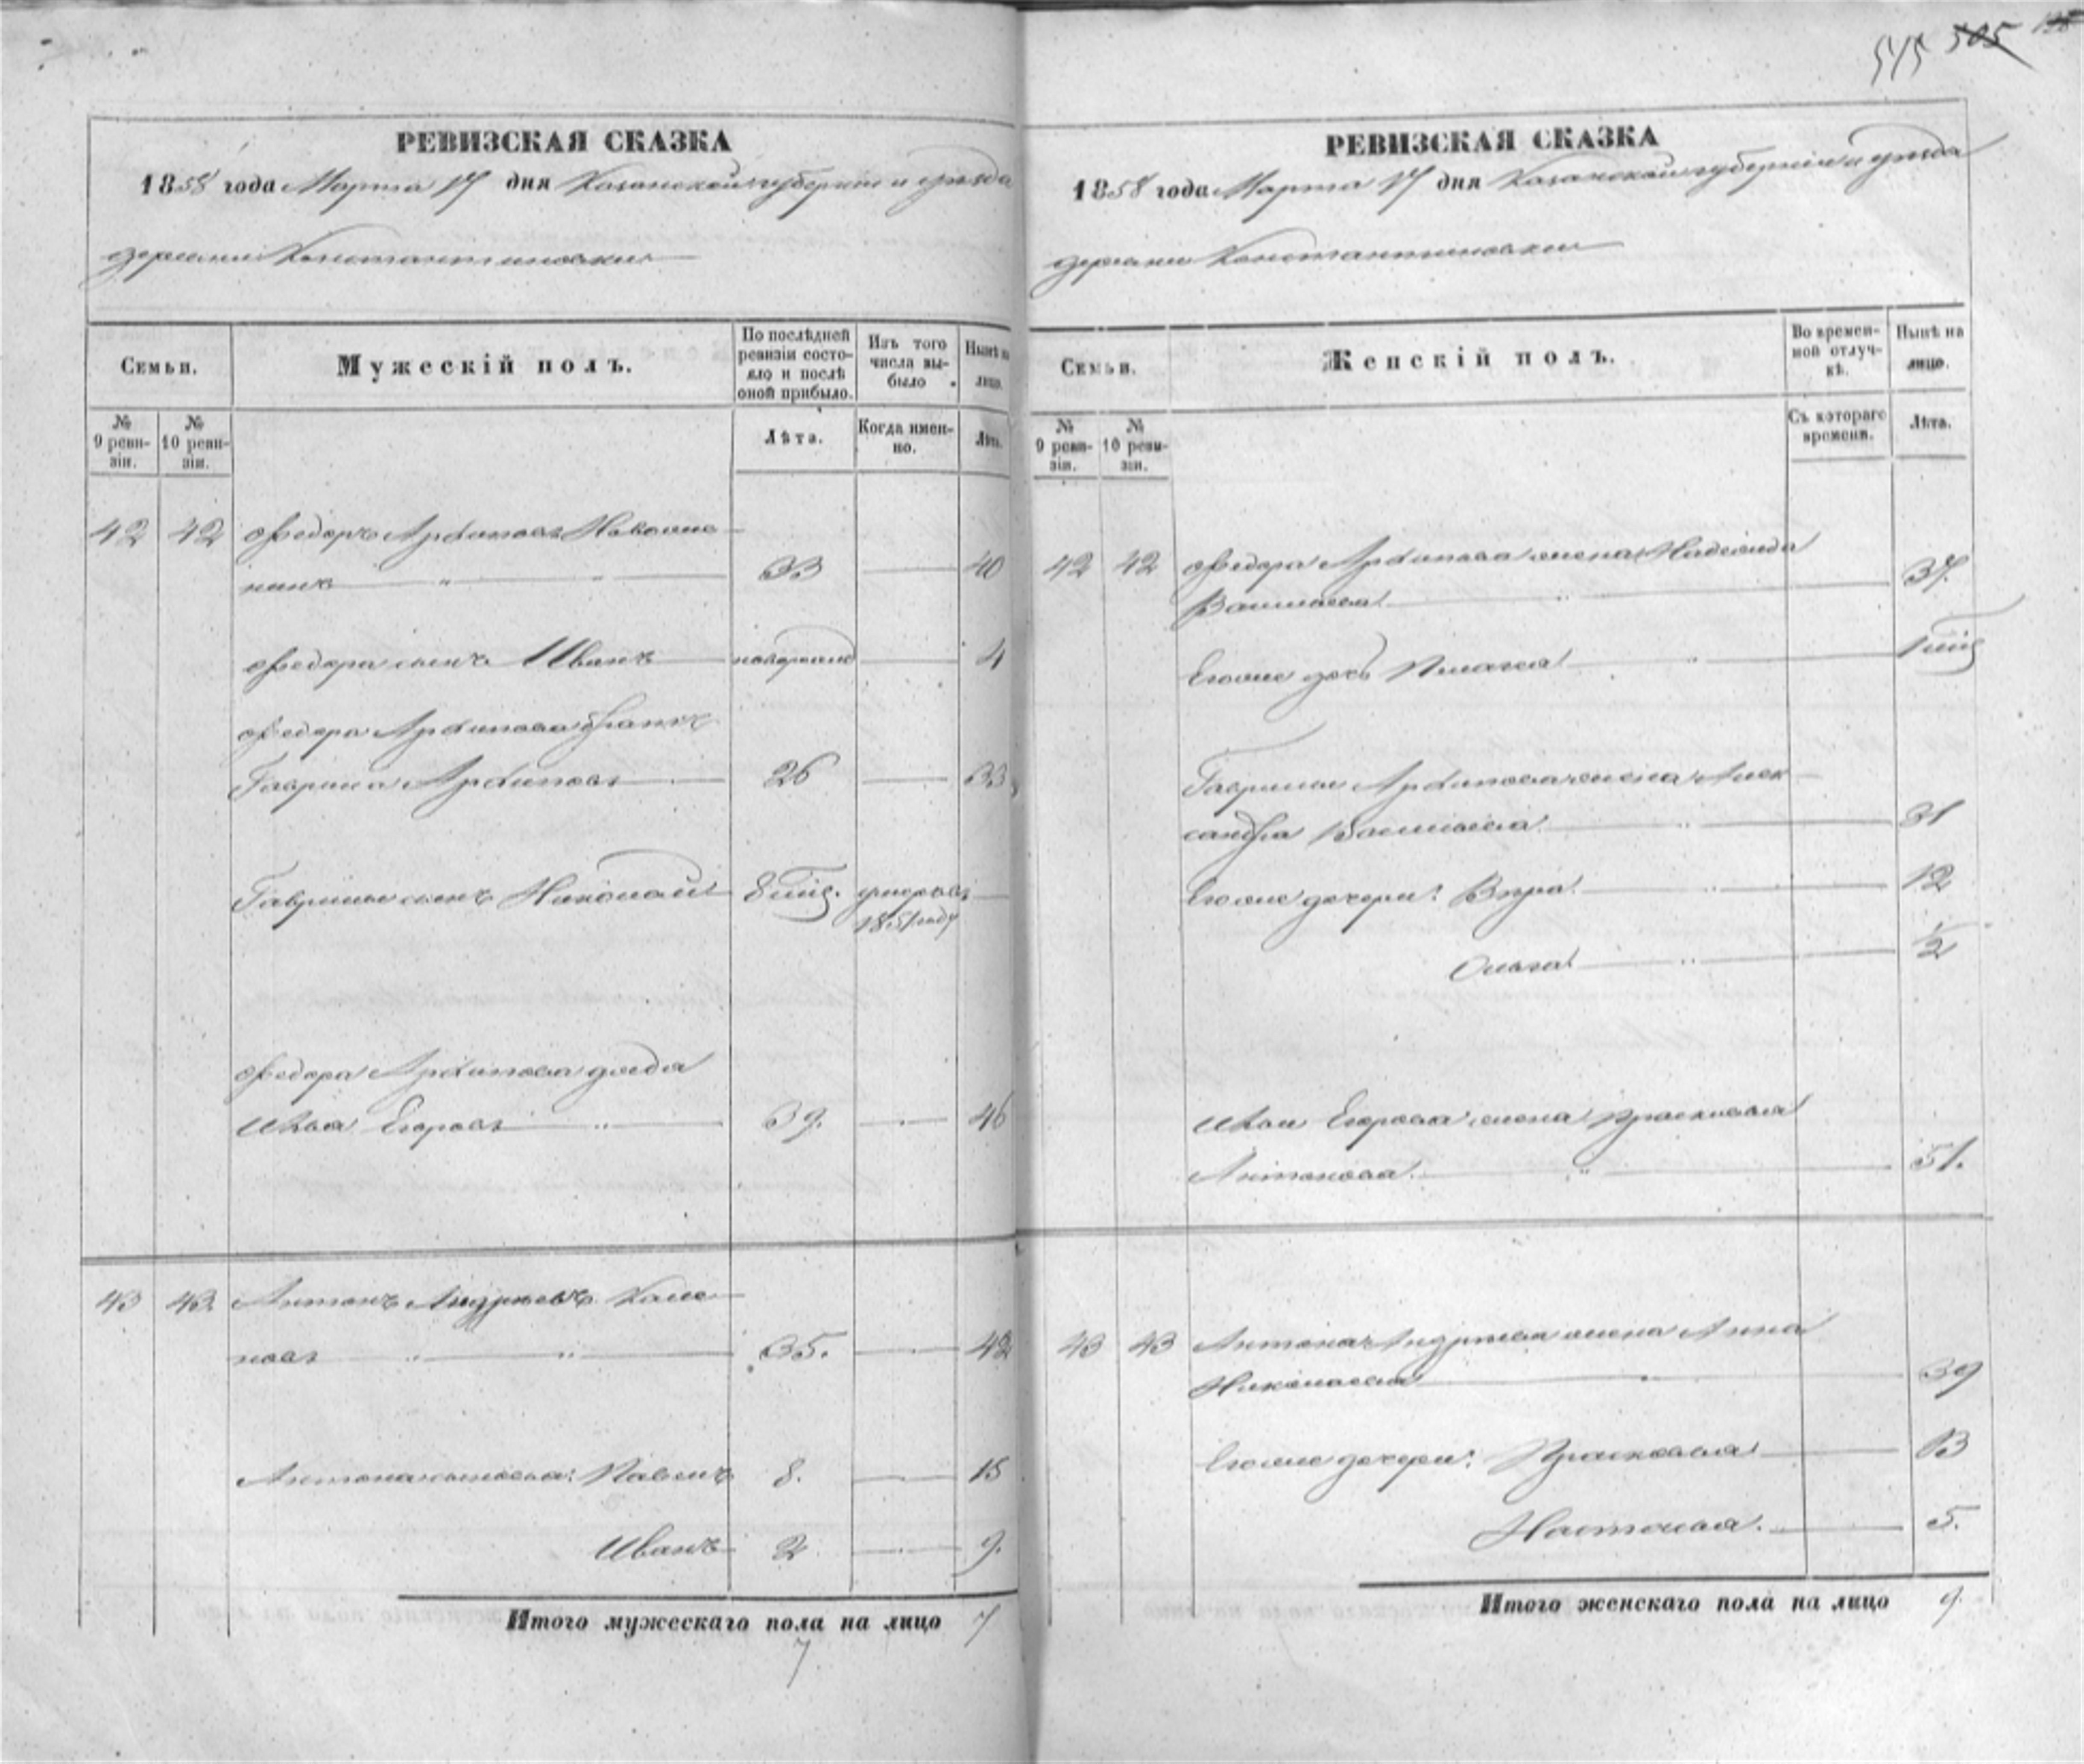 545 505
РЕВИЗСКАЯ СКАЗКА
1858 года Марта 17 дня Казанской губернии и уезда
деревни Константиновки
Семьи.
Мужескій полъ.
По послѣдней ревизіи состояло и послѣ оной прибыло.
Изъ того числа выбыло
Нынѣ на лицо.
№ 9 ревизіи.
№ 10 ревизіи.
Лѣта.
Когда именно.
Лѣта.
42 42 Федоръ Архиповъ
33 40
Федора сынъ Иванъ новорожд 4
Федора Архипова братъ
Гаврила Архиповъ 26 33
Гаврилы сынъ Николай 8 умеръ въ
1851 году
Федора Архипова дядя
Илья Егоровъ 39. 46
43 43 Антонъ Андреевъ
новъ 35. 42
Антона сыновья: Павелъ 8. 15
Иванъ 2 9.
Итого мужескаго пола на лицо 7
7
РЕВИЗСКАЯ СКАЗКА
1858 года Марта 17 дня Казанской губерніи и уезда
деревни Константиновки
Семьи.
Женскій полъ.
Во временной отлучкѣ.
Нынѣ на лицо.
№ 9 ревизіи.
№ 10 ревизіи.
Съ котораго времени.
Лѣта.
42 42 Федора Архипова жена Надежда
Васильева 37.
Его же дочь Пелагея
Гаврилы Архипова жена Алек
сандра Васильева 31
Его же дочери: Вѣра 12
Ольга 1/2
Ильи Егорова жена Прасковья
Антонова 51.
43 43 Антона Андреева жена Анна
Николаева 39
Его же дочери: Прасковья 13
Настасья. 5.
Итого женскаго пола на лицо 9.